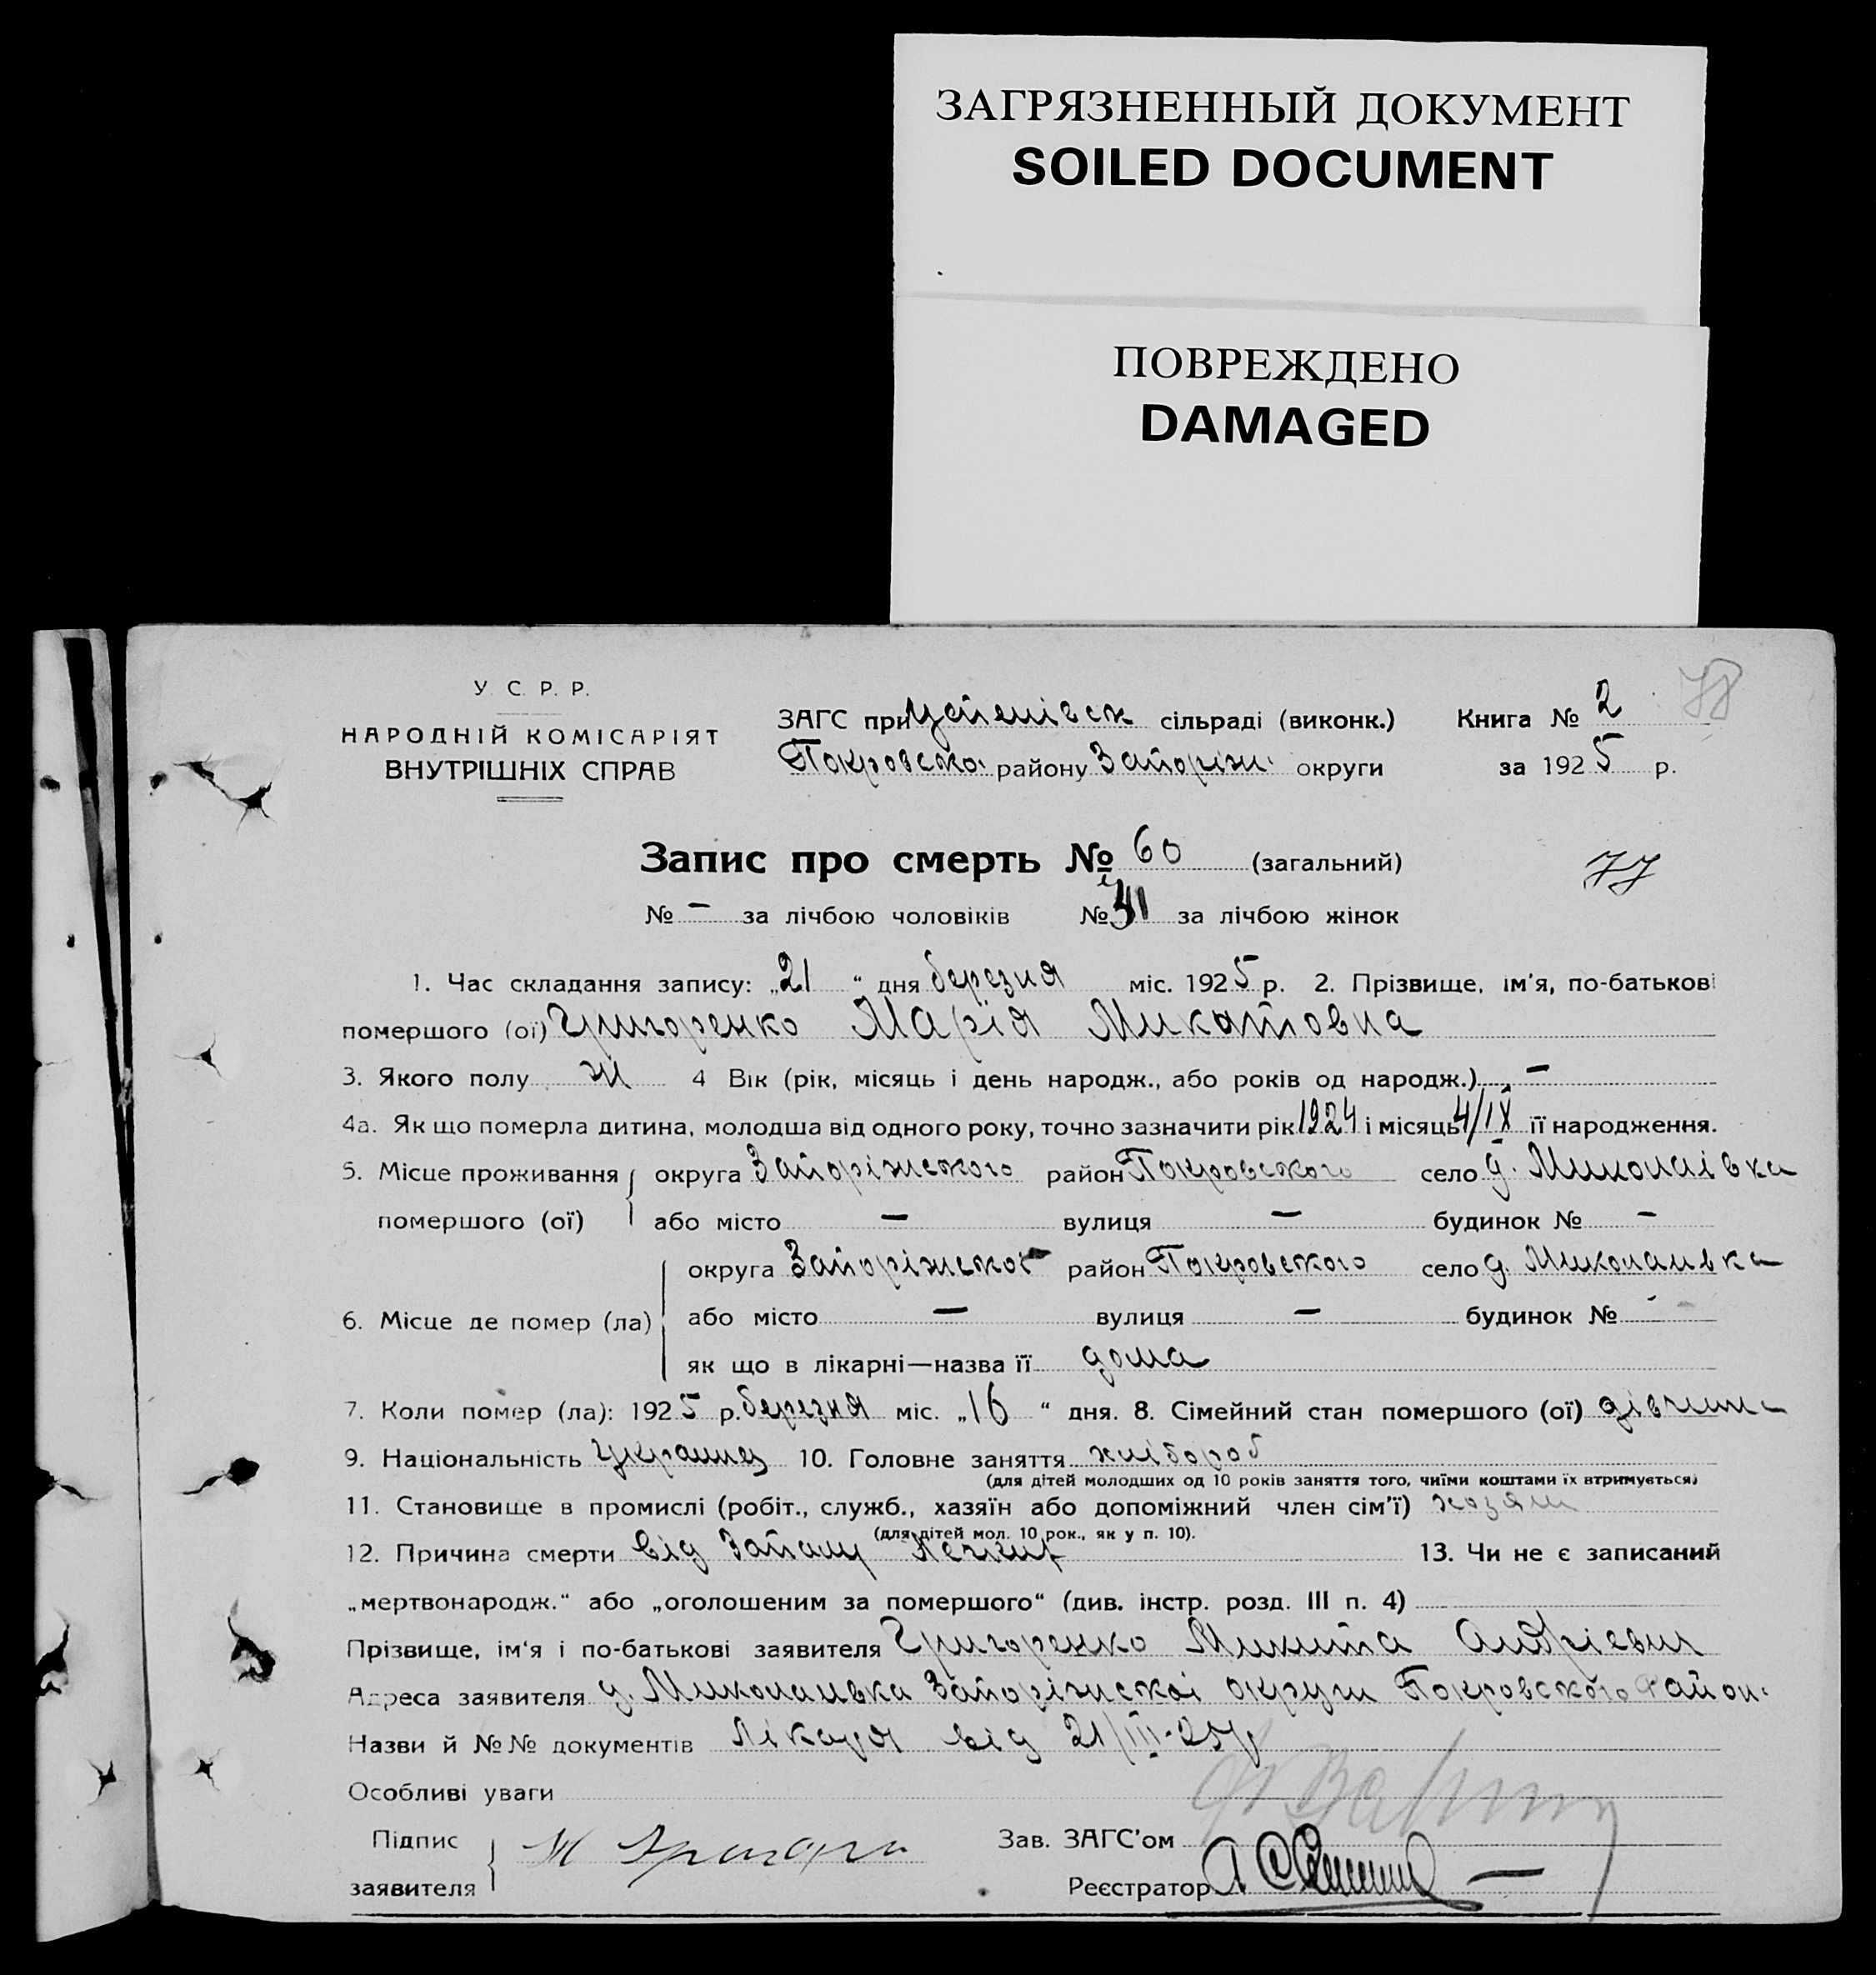 ЗАГРЯЗНЕННЫЙ ДОКУМЕНТ
SOILED DOCUMENT
ПОВРЕЖДЕНО
DAMAGED
У. С. Р. Р.
НАРОДНІЙ КОМІСАРІЯТ
ВНУТРІШНІХ СПРАВ
ЗАГС при сільраді (виконк.) Книга № 2 78
Покровсько. району Запоріж. округи за 1925 р.
Запис про смерть № 60 (загальний) 77
№ — за лічбою чоловіків № за лічбою жінок
1. Час складання запису: „21“ дня березня міс. 1925 р. 2. Прізвище, ім'я, по-батькові
помершого (ої) Григоренко Марія Микитовна
3. Якого полу ж 4 Вік (рік, місяць і день народж., або років од народж.) —
4а. Як що померла дитина, молодша від одного року, точно зазначити рік 1924 і місяць 4/IX її народження.
5. Місце проживання округа Запоріжського район Покровського село д. Миколаівка
помершого (ої) або місто — вулиця — будинок № —
округа Запоріжської район Покровського село д. Миколаивка
6. Місце де помер (ла) або місто — вулиця — будинок № -
як що в лікарні—назва її дома
7. Коли помер (ла): 1925 р. березня міс. „16“ дня. 8. Сімейний стан помершого (ої) дівчина
9. Національність Украинец 10. Головне заняття хлібороб
(для дітей молодших од 10 років заняття того, чиїми коштами їх втримується)
11. Становище в промислі (робіт., служб., хазяїн або допоміжний член сім'ї) хозяин
(для дітей мол. 10 рок., як у п. 10).
12. Причина смерти від Запалу 13. Чи не є записаний
„мертвонародж.“ або „оголошеним за помершого“ (див. інстр. розд. III п. 4)
Прізвище, ім'я і по-батькові заявителя Григоренко Микита Андрієвич
Адреса заявителя д. Миколаивка Запоріжської округи Покровського район.
Назви й №№ документів Лікаря від 21/III-25 р
Особливі уваги
Підпис Зав. ЗАГС'ом
заявителя М Реєстратор —